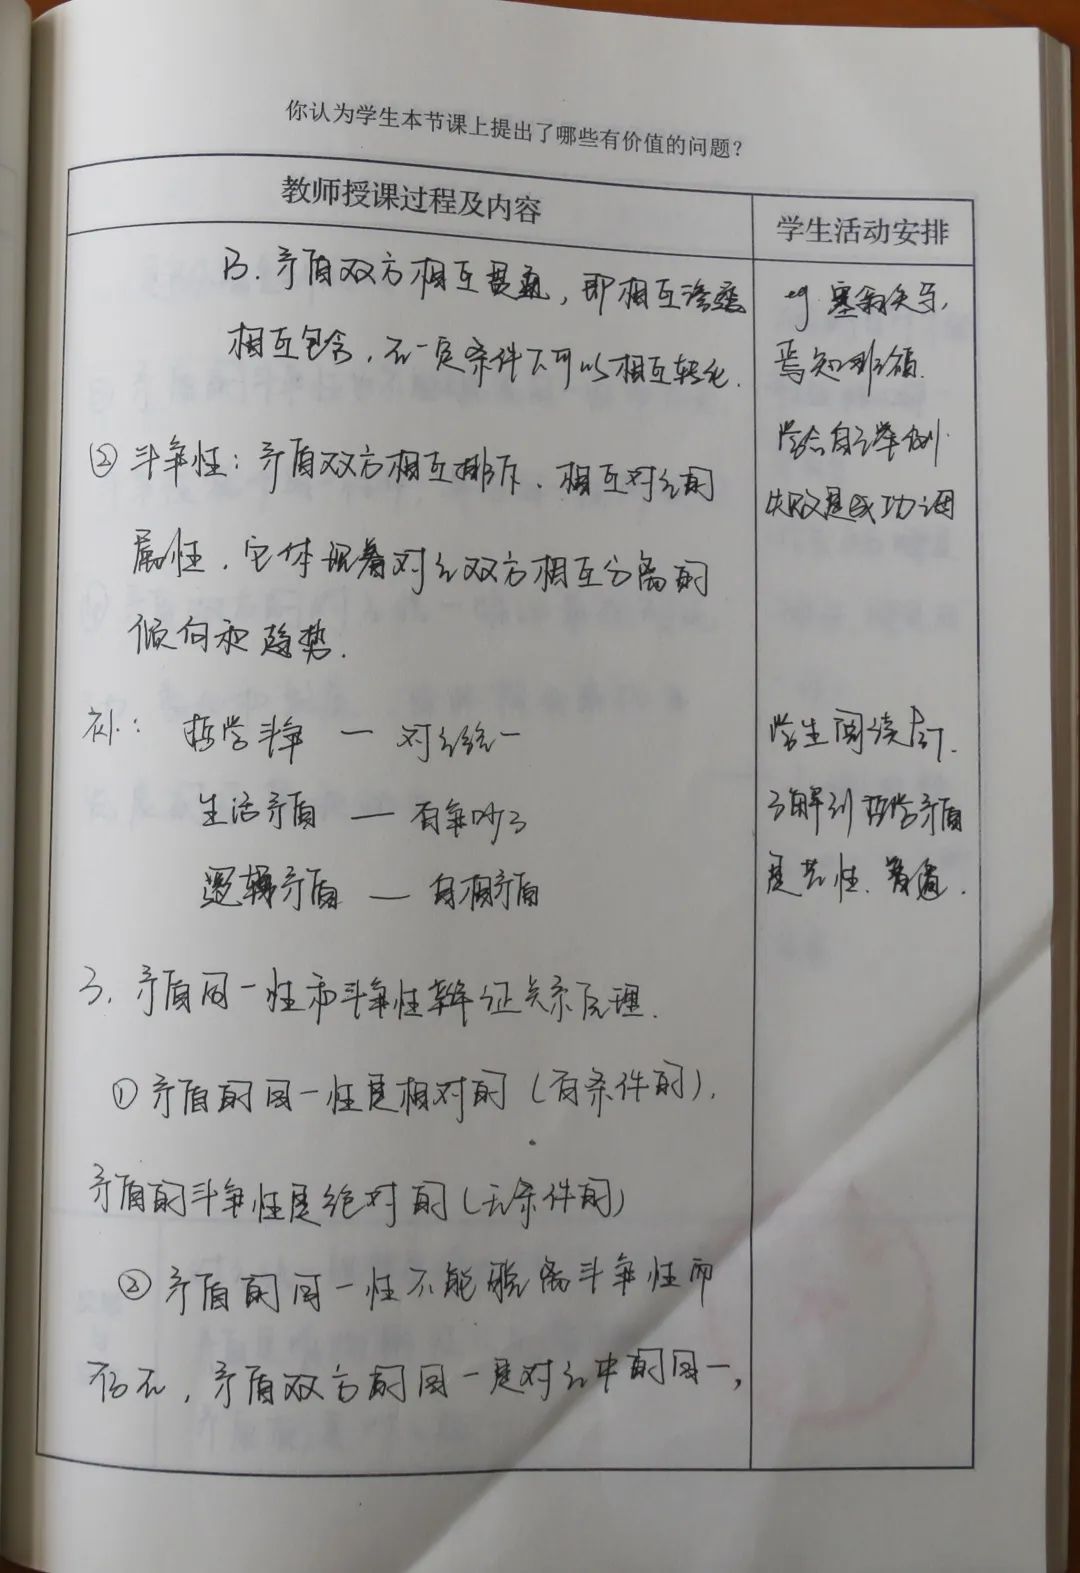 你认为学生本节课上提出了哪些有价值的问题？
教师授课过程及内容
学生活动安排
B. 矛盾双方相互贯通，即相互渗透
相互包含，在一定条件下可以相互转化.
② 斗争性：矛盾双方相互排斥、相互对立的
属性，它体现着对立双方相互分离的
倾向和趋势.
补： 哲学矛盾 — 对立统一
生活矛盾 — 有争吵了
逻辑矛盾 — 自相矛盾
3. 矛盾同一性和斗争性辩证关系原理.
① 矛盾的同一性是相对的（有条件的）,
矛盾的斗争性是绝对的（无条件的）
② 矛盾的同一性不能脱离斗争性而
存在，矛盾双方的同一是对立中的同一，
eg. 塞翁失马,
焉知非福.
学会自己举例.
失败是成功之母
学生阅读后.
了解到哲学矛盾
是共性、普遍.